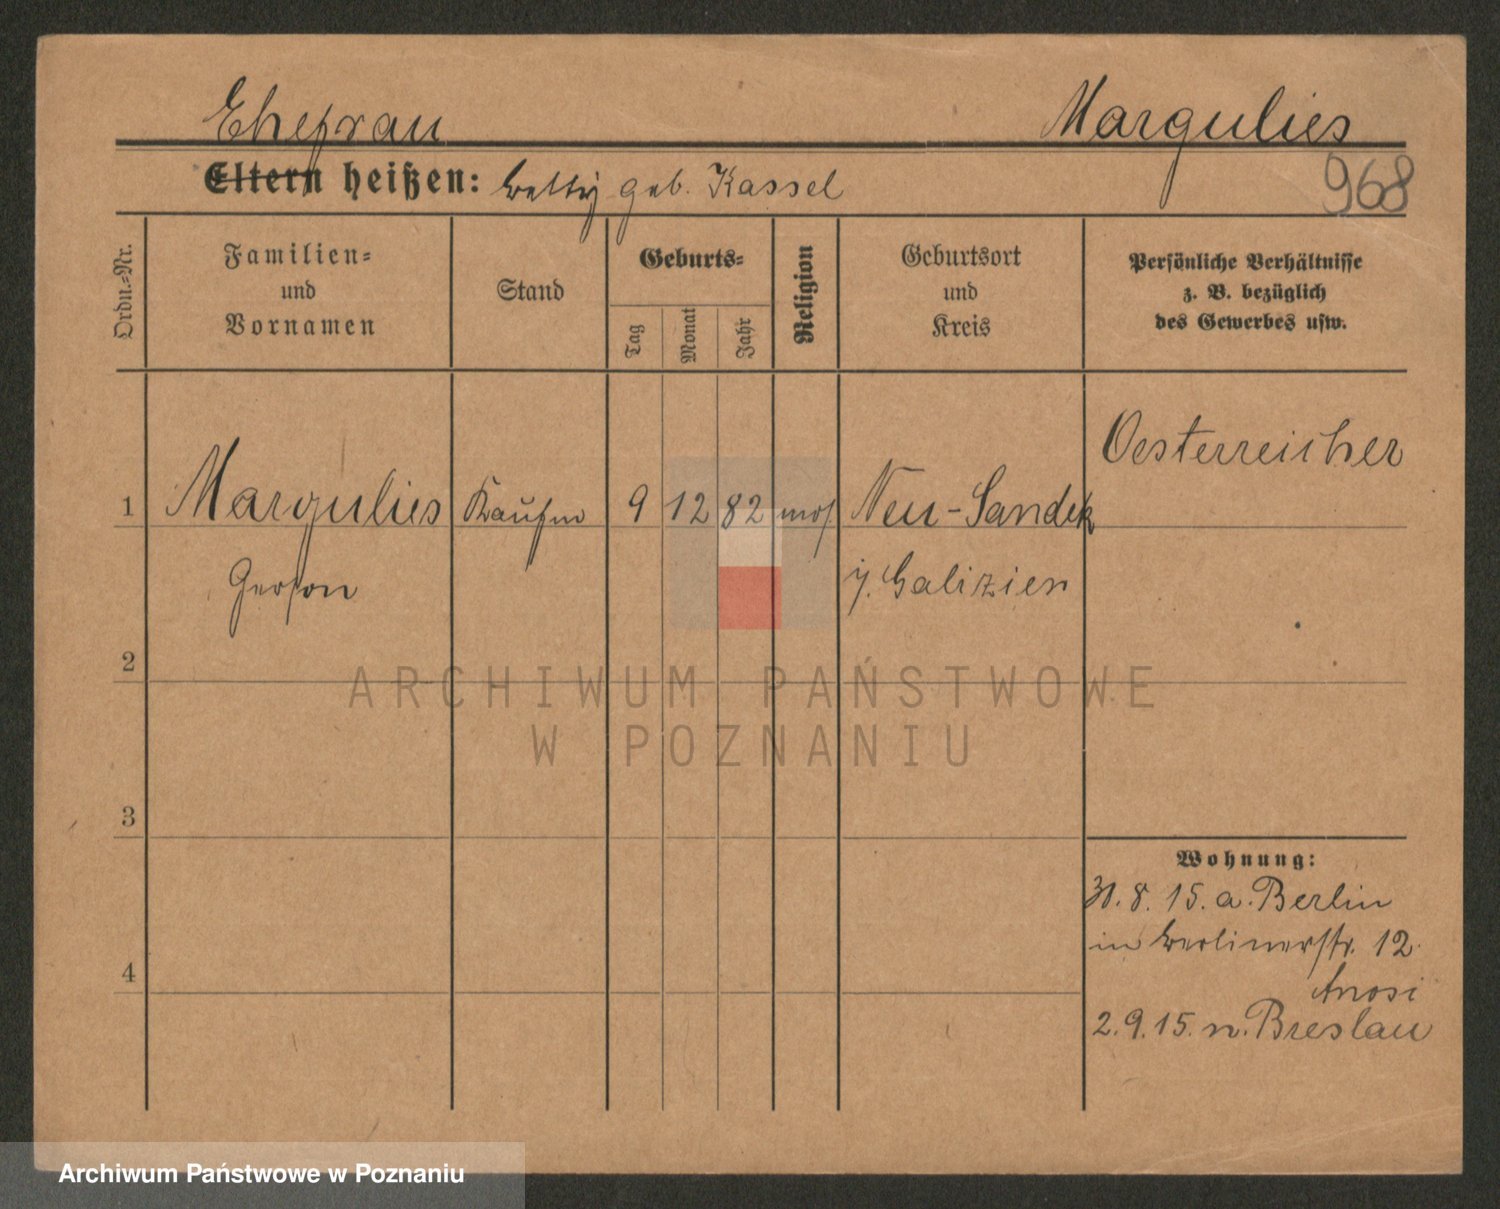 Ehefrau Margulies
Eltern heißen: Betty geb. Kassel
968
Ordn.-Nr.
Familien-
und
Vornamen
Stand
Geburts-
Tag
Monat
Jahr
Religion
Geburtsort
und
Kreis
Persönliche Verhältnisse
z. B. bezüglich
des Gewerbes usw.
Oesterreicher
1 Margulies Kaufm 9 12 82 mos Neu-Sandek
Gerson i. Galizien
2
ARCHIWUM PAŃSTWOWE
W POZNANIU
3
Wohnung:
31.8.15. a. Berlin
in Berlinerstr. 12
4
2.9.15. n. Breslau
Archiwum Państwowe w Poznaniu